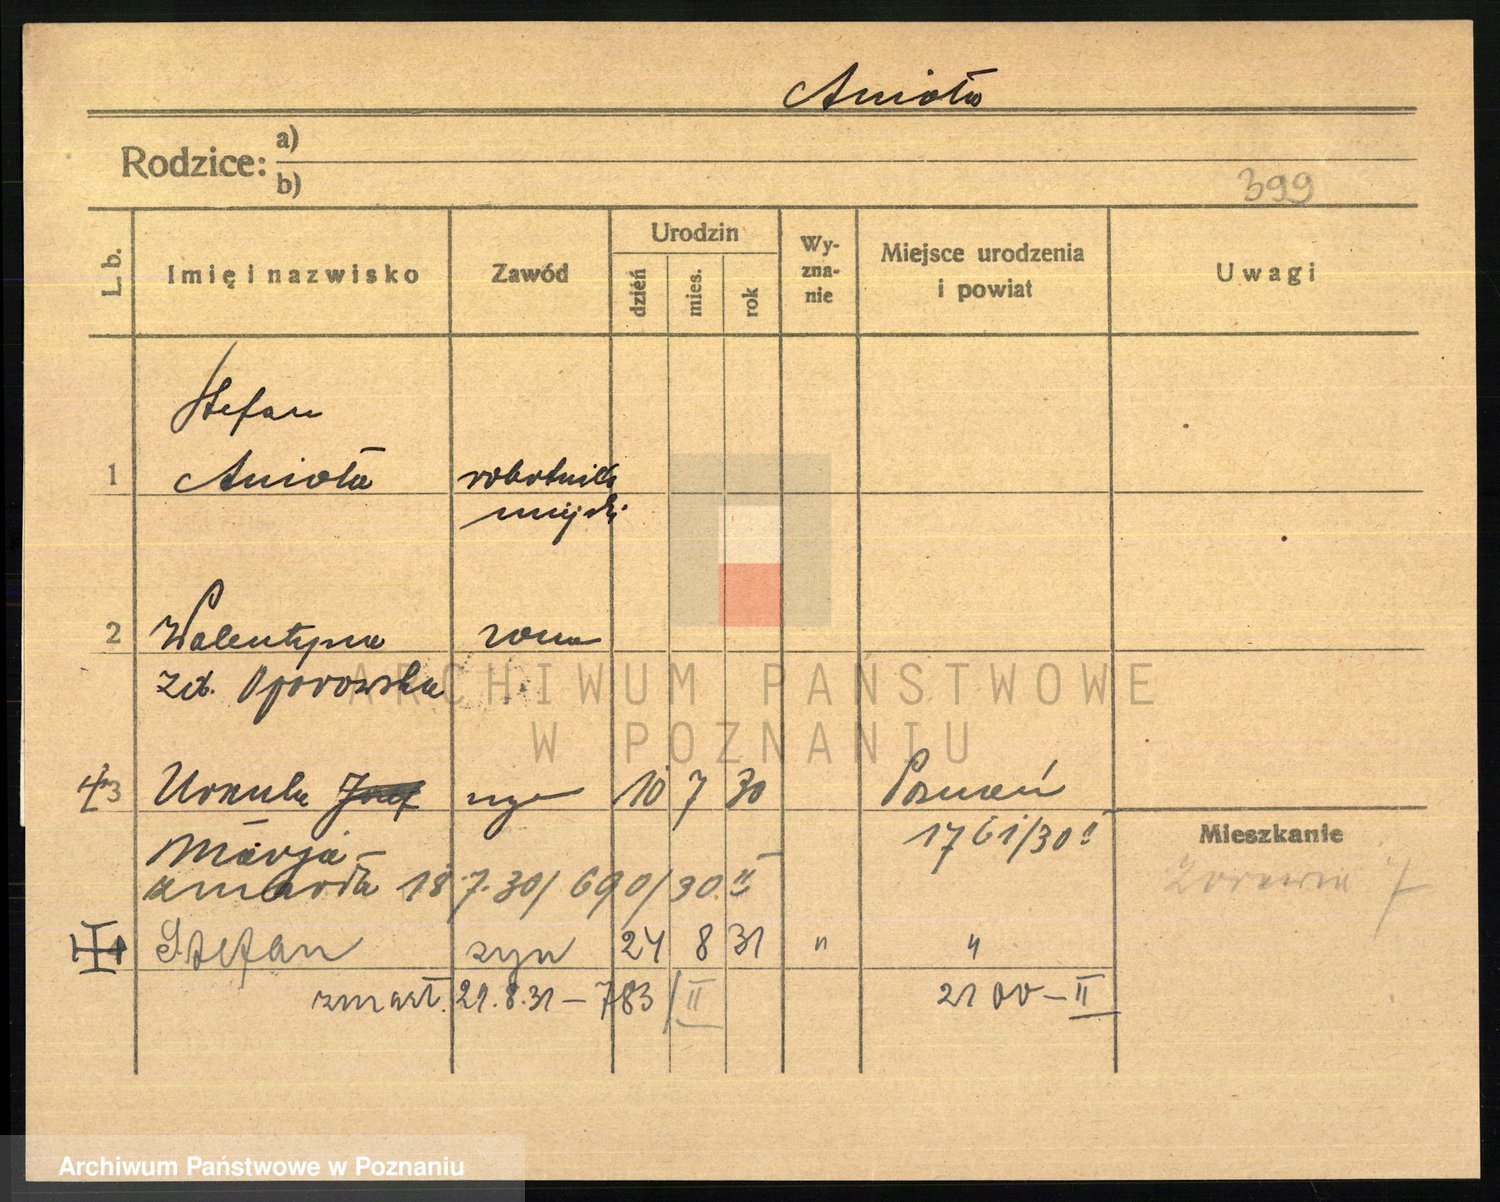 Anioła
Rodzice: a)
b)
399
L. b.
Imię i nazwisko
Zawód
Urodzin
dzień
mies.
rok
Wy-
zna-
nie
Miejsce urodzenia
i powiat
Uwagi
Stefan
1 Anioła robotnik
miejski
2 Walentyna żona
zd. Oporowska
3 Urszula Józef 10 7 30 Poznań
Marja 1761/30 II
zmarła 18.7.30/690/30. II
Stefan syn 24 8 31 " "
zmarł. 29.8.31 – 783/II 2100 – II
Mieszkanie
7
ARCHIWUM PAŃSTWOWE
W POZNANIU
Archiwum Państwowe w Poznaniu